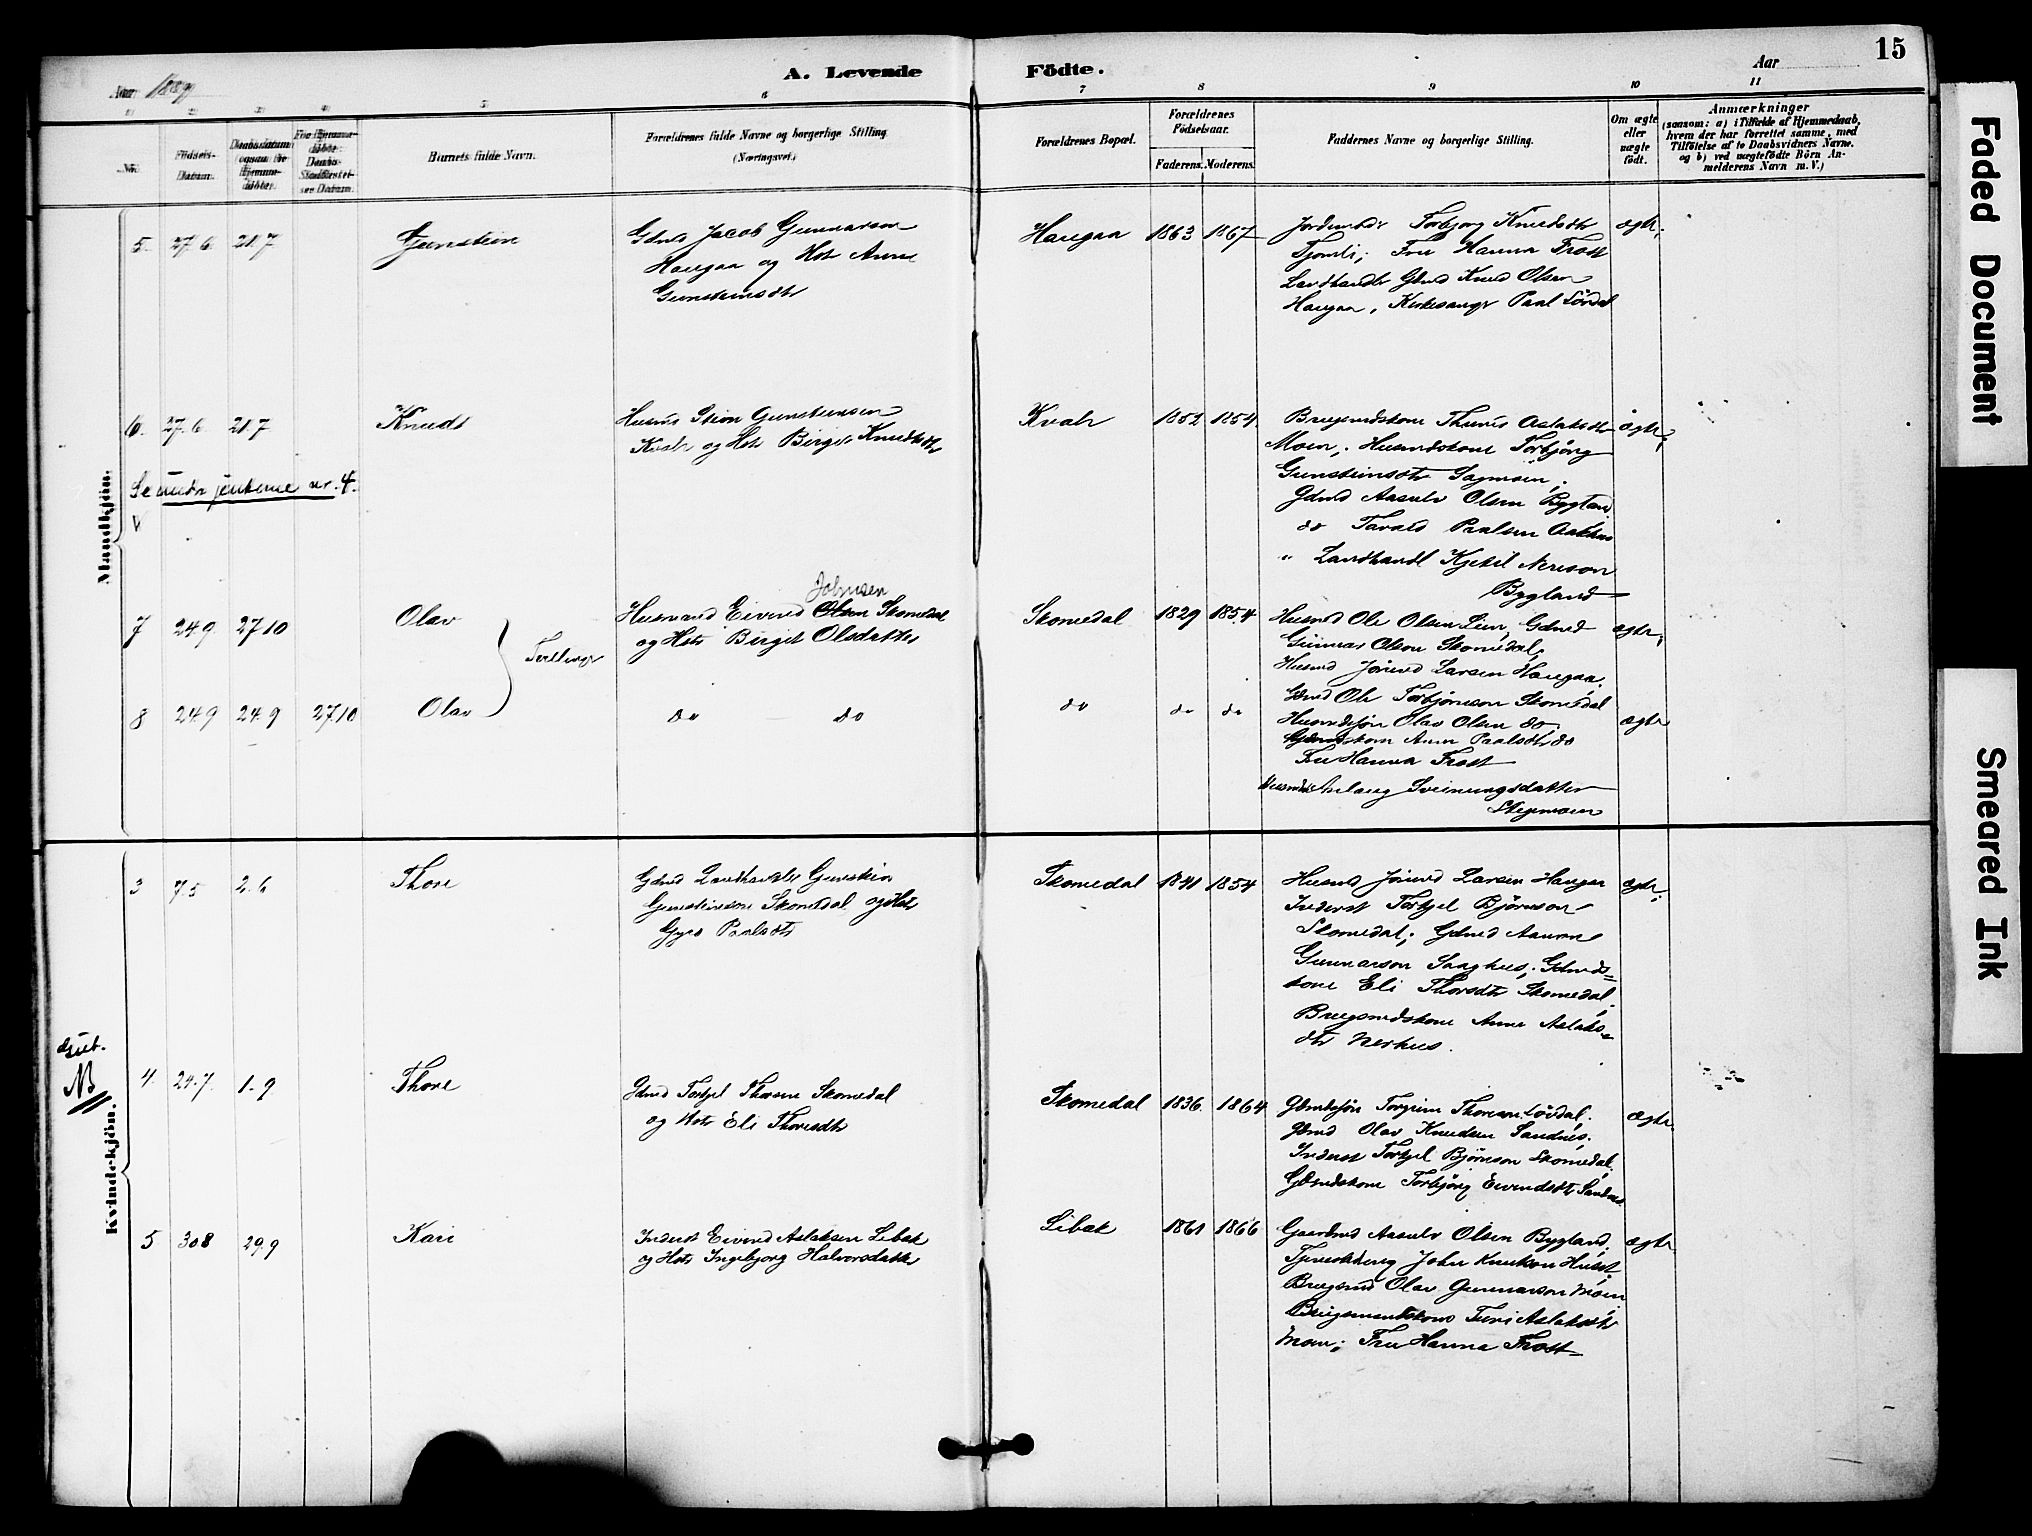 15
A. Levende Födte.
Aar 1889
Aar
1 2 3 4 5 6 7 8 9 10 11
No.
Födsels-
Datum.
Daabsdatum
(ogsaa for
Hjemme-
döbte.
For Hjemme-
döbte:
Daabs-
Stadfæstel-
ses Datum.
Barnets fulde Navn.
Forældrenes fulde Navne og borgerlige Stilling.
(Næringsvei.)
Forældrenes Bopæl.
Forældrenes
Födselsaar.
Faderens. Moderens.
Faddernes Navne og borgerlige Stilling.
Om ægte
eller
uægte
födt.
Anmærkninger
(saasom: a) i Tilfælde af Hjemmedaab,
hvem der har forrettet samme, med
Tilföielse af to Daabsvidners Navne.
og b) ved uægtefödte Börn An-
melderens Navn m. V.)
Mandkjön.
5. 27.6 21.7 Gunstein
Gdmd Jacob Gunnarson
Haugaa og Hst Anne
Gunsteinsdtr
Haugaa 1863 1867
Jordemdr Torbjorg Knudsdtr
Tjomli; Fru Hanna Frost
Landhandlr Gdmd Knud Olsen
Haugaa, Kirkesangr Paal Lövdal
ægte;
6. 27.6 21.7 Knudt
Husmd Stian Gunsteinsen
Kvale og Hst Birgit Knudsdtr
Kvale 1852 1854
Brugsmdskone Thurid Aslaksdtr
Moen; Husmdskone Torbjörg
Gunsteinsdtr Sagmoen;
Gdmd Aasulv Olsen Bygland
do Tarald Paalsen Aakhus
" Landhandl Kjetil Nereson
Bygland
ægte;
Se under jenterne nr. 4.
V
7 24.9 27.10 Olav
Husmand Eivind Olsen Skomedal
Johnsen
og Hst Birgit Olsdatter
Skomedal 1829 1854
Husmd Ole Olsen Lien, Gdmd
Gunnar Olson Skomedal,
Husmd Jörund Larsen Haugaa.
ægte;
Tvillinger
8 24.9 24.9 27.10 Olav
do do
do do do
Gdmd Ole Torbjörnson Skomedal
Husmdssön Olav Olsen do
Gdmdskone Anne Paalsdtr do
Fru Hanna Frost
Aslaug Sveinungsdatter
Stegemoen
ægte
Kvindekjön.
3 7.5 2.6 Thore
Gdmd Landhandlr Gunstein
Gunsteinson Skomedal og Hst
Gyro Paalsdtr
Skomedal 1841 1854
Husmd Jörund Larsen Haugaa
Inderst Torkjel Björnson
Skomedal; Gdmd Aanon
Gunnarson Saaghus; Gdmds=
kone Eli Thorsdtr Skomedal.
Brugsmdskone Anne Aslaks=
dtr Nerhus.
ægte;
Gut.
NB
4. 24.7. 1.9 Thore
Gdmd Torkjel Thorsen Skomedal
og Hst Eli Thorsdtr
Skomedal 1836. 1864
Gdmdssön Torgrim Thoreson Lövdal;
Gdmd Olav Knudsen Sandnes.
Inderst Torkjel Björnson Skomedal.
Gdmdskone Torbjörg Eivindsdtr Sandnes
ægte.
5 30.8 29.9 Kari
Inderst Eivind Aslaksen Libæk
og Hst Ingebjorg Halvorsdatter
Libæk 1861 1866
Gaardmd Aasulv Olsen Bygland;
John Knutson
Brugsmd Olav Gunnarson Moen
Brugsmandskone Turi Aslaksdtr
Moen; Fru Hanna Frost
ægte
Faded Document
Smeared Ink